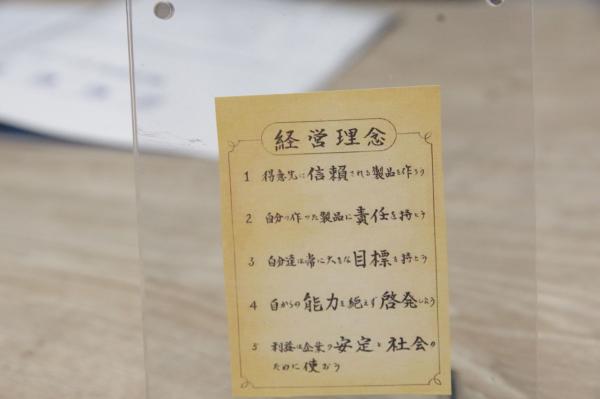 経営理念
1 得意先に信頼される製品を作ろう
2 自分の作った製品に責任を持とう
3 自分達は常に大きな目標を持とう
4 自からの能力を絶えず啓発しよう
5 利益は企業の安定と社会の
ために使おう